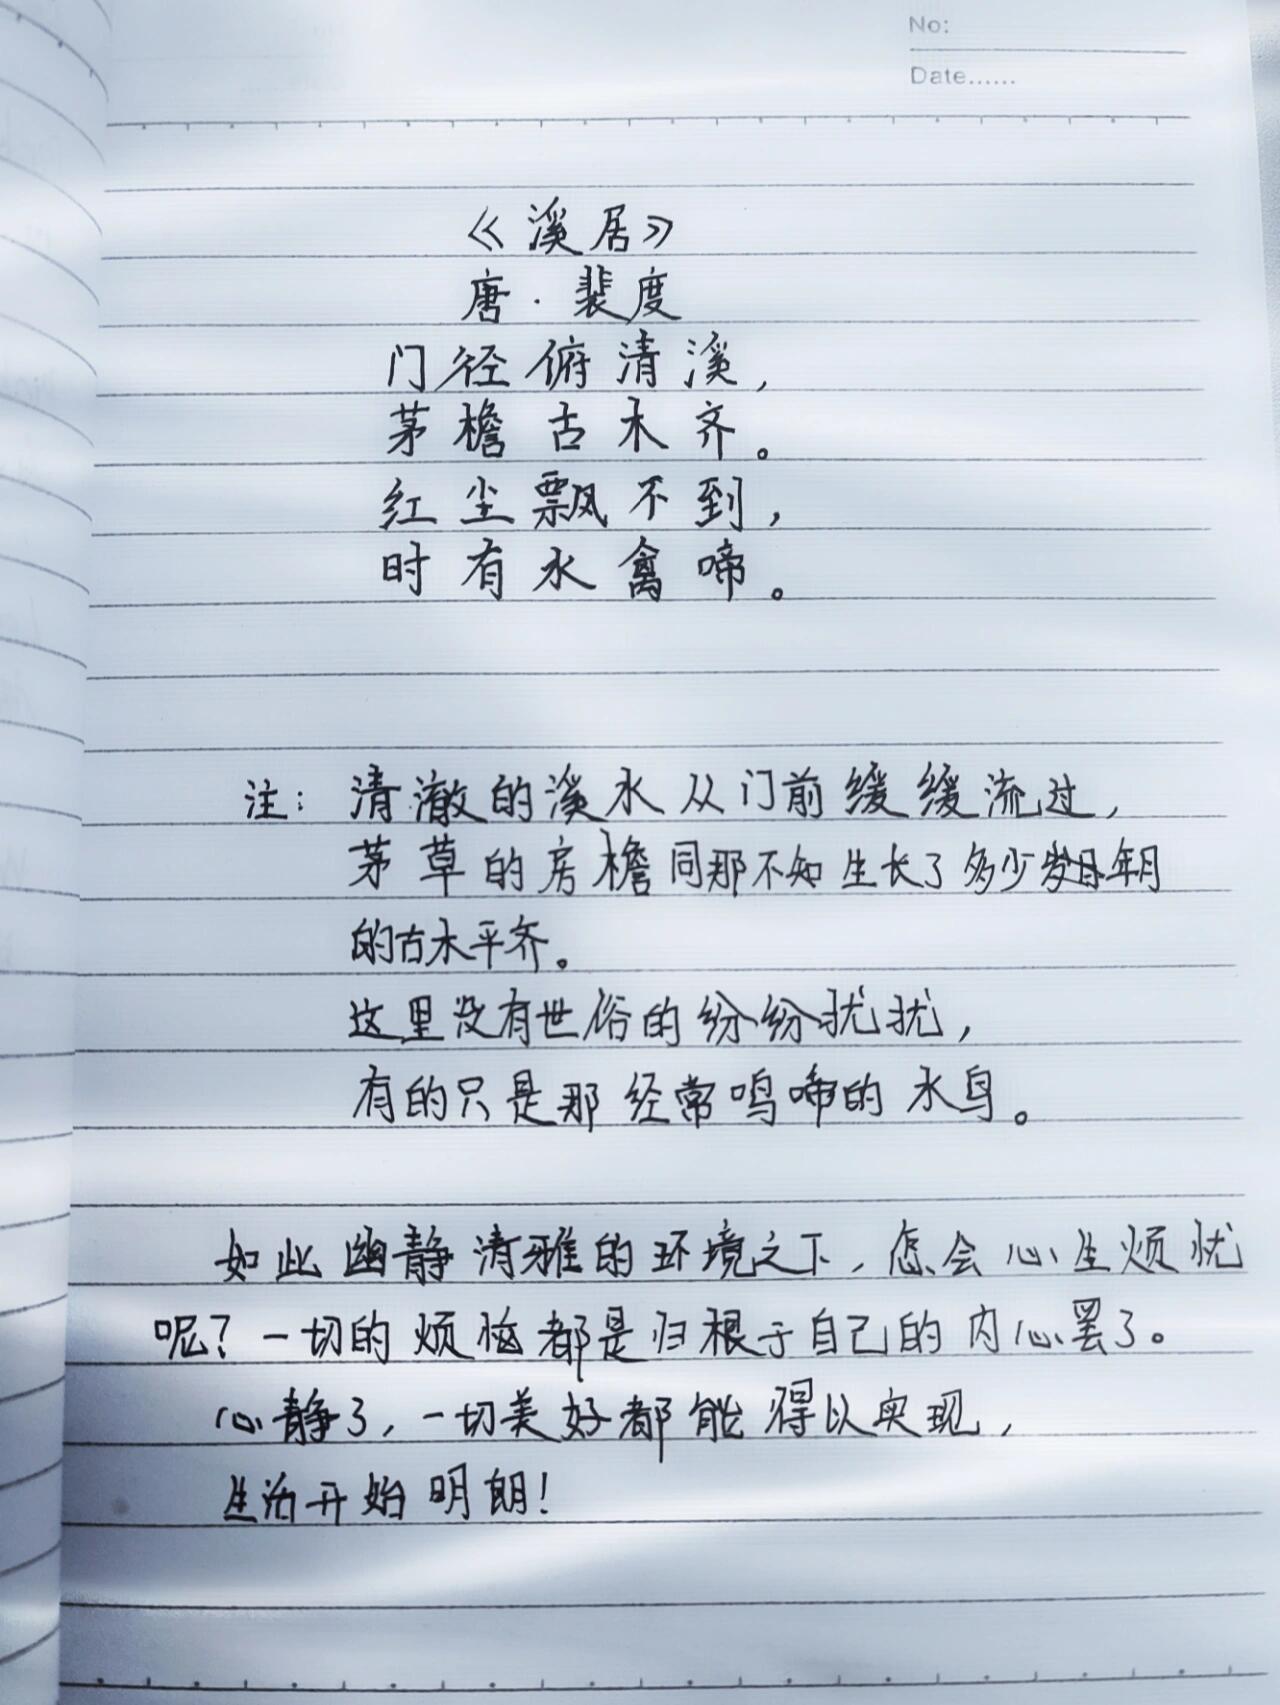 No:
Date......
《溪居》
唐·裴度
门径俯清溪,
茅檐古木齐。
红尘飘不到,
时有水禽啼。
注: 清澈的溪水从门前缓缓流过,
茅草的房檐同那不知生长了多少年月
的古木平齐。
这里没有世俗的纷纷扰扰,
有的只是那经常鸣啼的水鸟。
如此幽静清雅的环境之下,怎会心生烦忧
呢?一切的烦恼都是归根于自己的内心罢了。
心静了,一切美好都能得以实现,
生活开始明朗!